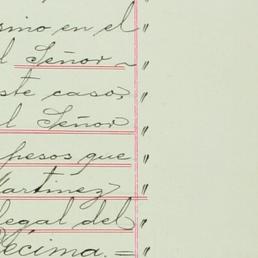 sino en el "
l Señor ~ "
ste caso, "
l Señor "
pesos que "
Martinez "
legal del "
Décima. = "